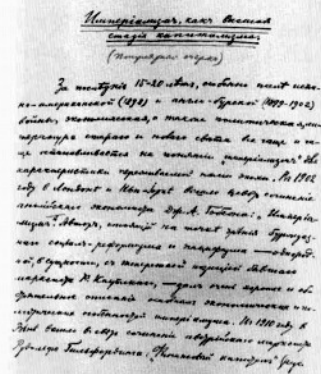 Имперіализмъ, какъ высшая
стадія капитализма.
(Популярный очеркъ)
За послѣднія 15-20 лѣтъ, особенно послѣ испа-
но-американской (1898) и англо-бурской (1899-1902)
войны, экономическая, а также политическая
литература стараго и новаго свѣта все чаще и ча-
ще останавливается на понятіи „имперіализмъ" для
характеристики переживаемой нами эпохи. Въ 1902
году въ Лондонѣ и Нью-Іоркѣ вышло въ свѣтъ сочиненіе
англійскаго экономиста Дж. А. Гобсона: „Имперіа-
лизмъ". Авторъ, стоящій на точкѣ зрѣнія буржуаз-
наго соціалъ-реформизма и пацифизма — однород-
ной, въ сущности, съ теперешней позиціей бывшаго
марксиста К. Каутскаго, — далъ очень хорошее и об-
стоятельное описаніе основныхъ экономическихъ и по-
литическихъ особенностей имперіализма. Въ 1910 году въ
Вѣнѣ вышло въ свѣтъ сочиненіе австрійскаго марксиста
Рудольфа Гильфердинга: „Финансовый капиталъ"